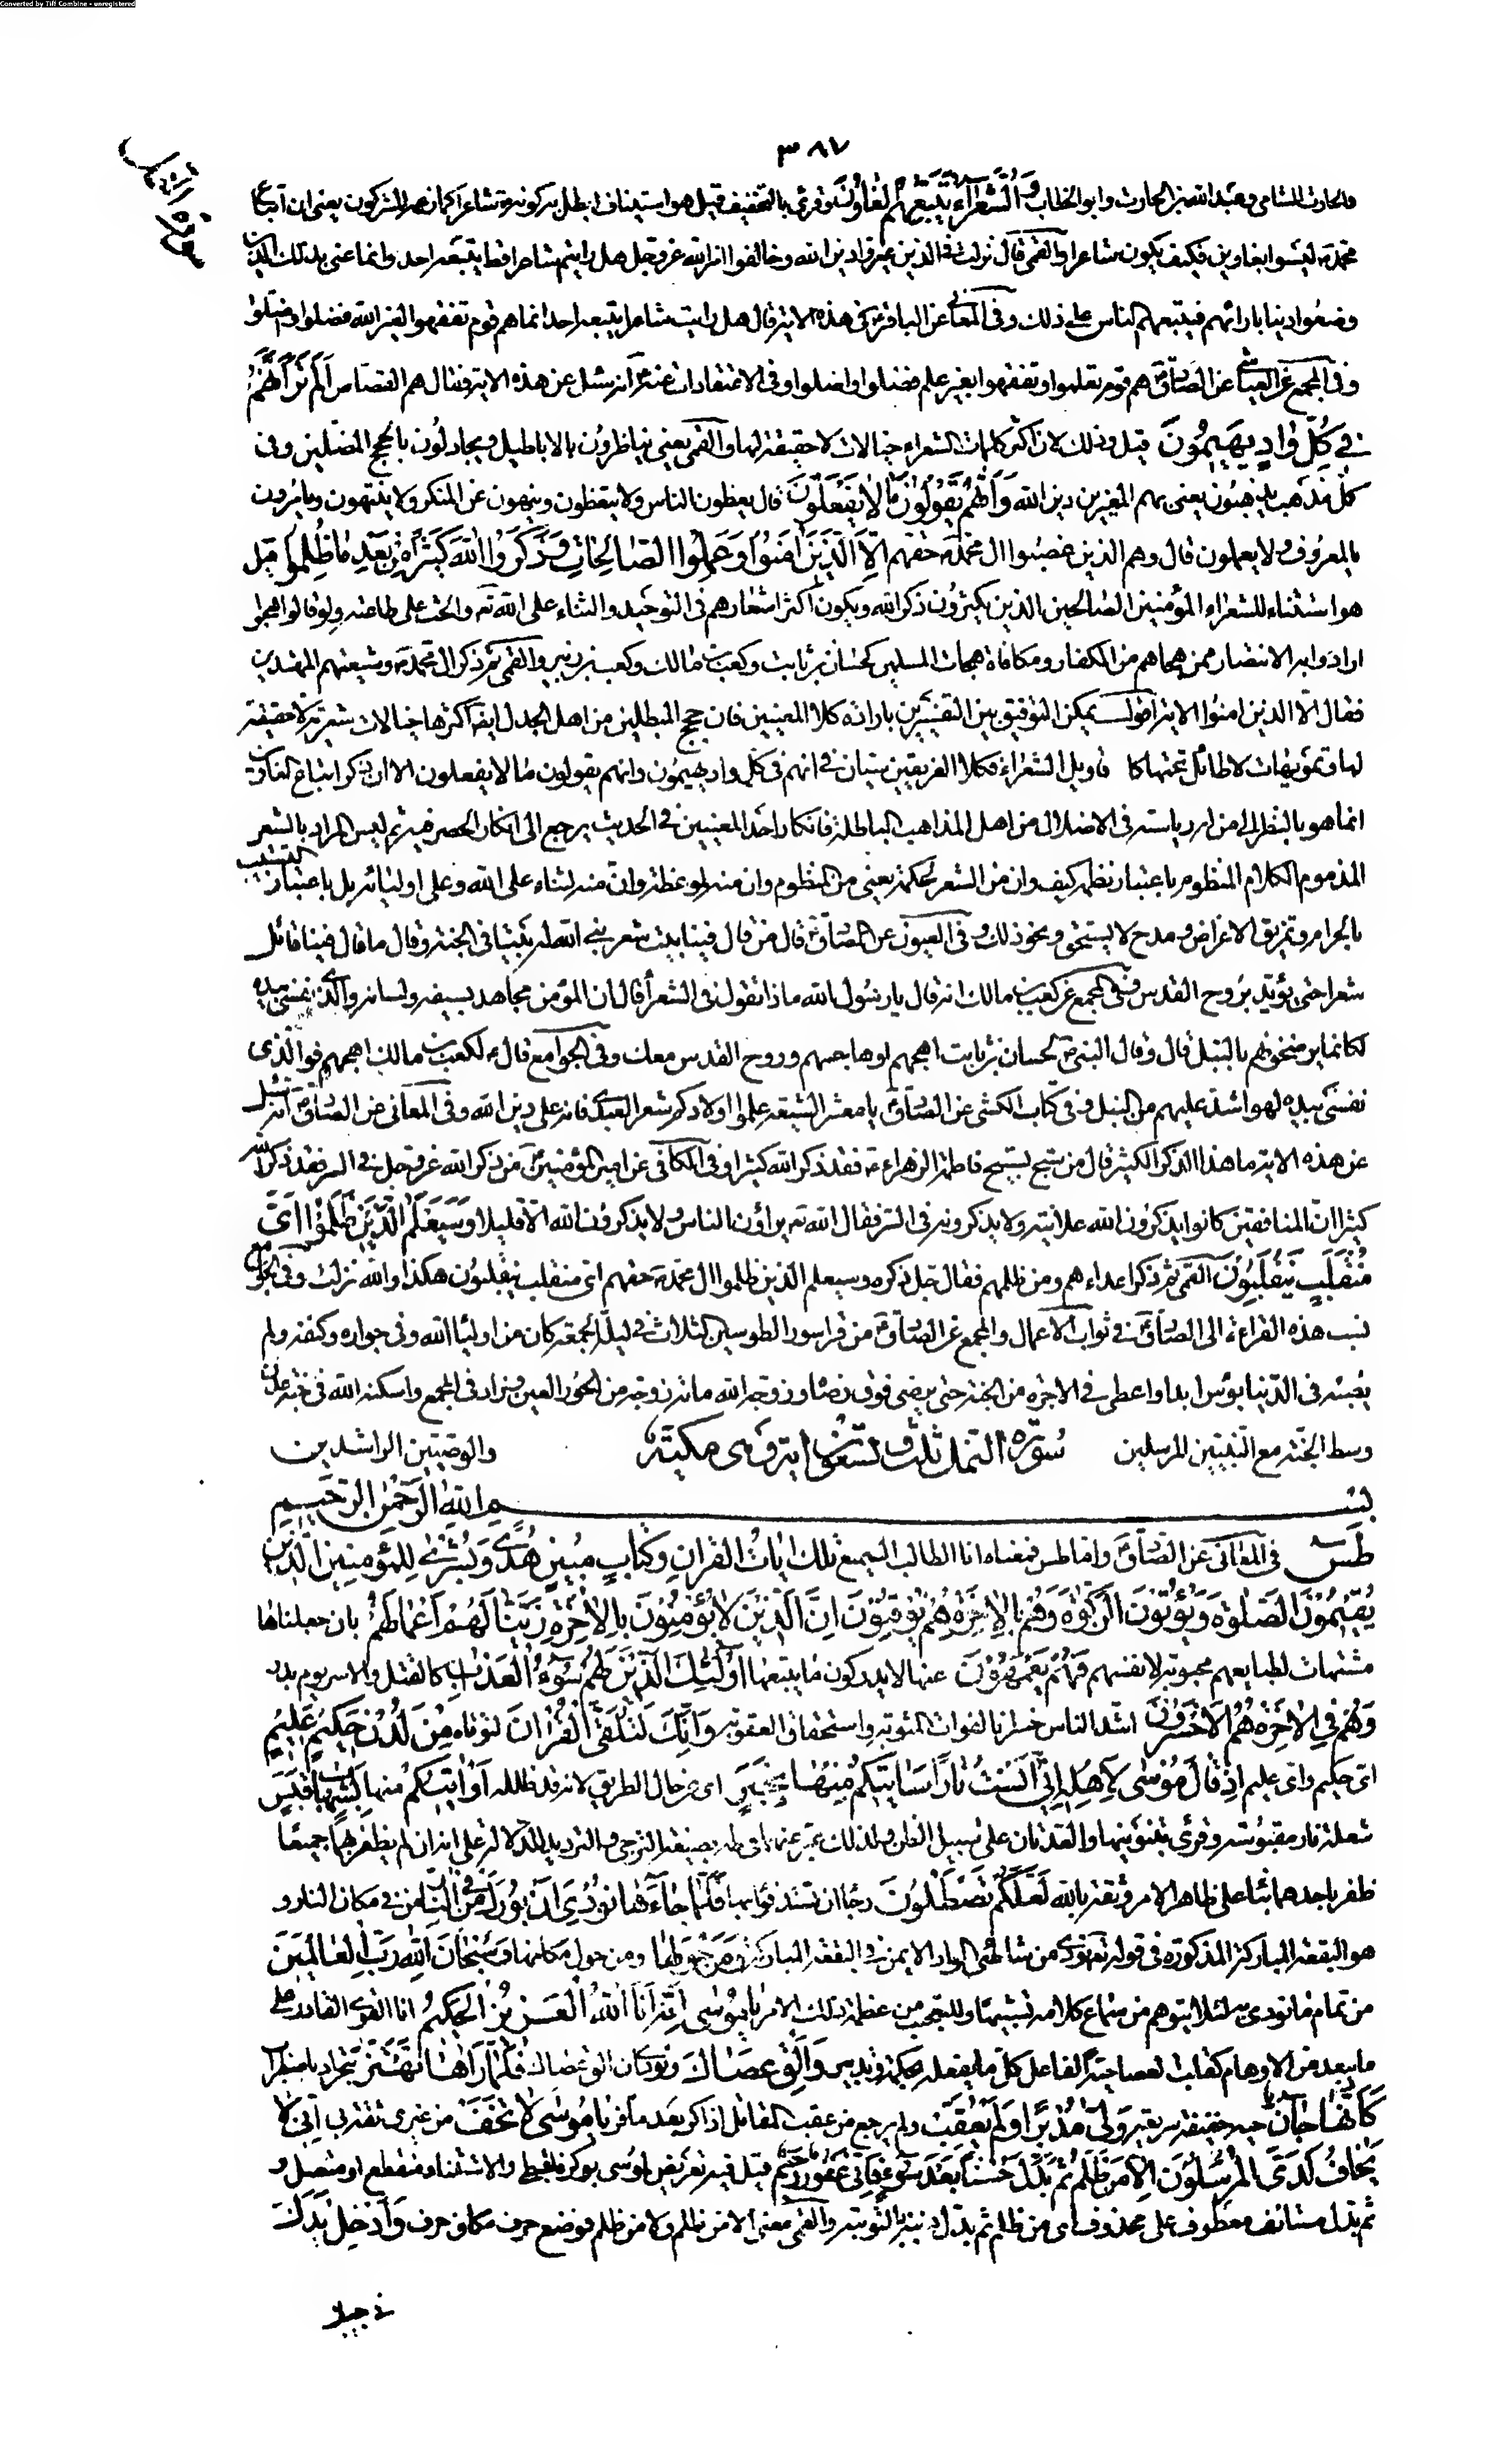 Converted by Tiff Combine - unregistered
٣٨٧
سورة الشعراء
والحارث الشامي وعبد الله بن الحارث وابو الخطاب وَالشُّعَرَاءُ يَتَّبِعُهُمُ الْغَاوُنَ وقرئ بالتخفيف قيل هو استيناف ابطل به كونه ص شاعرا كما زعمه المشركون يعني ان اتباع
محمد ص ليسوا بغاوين فكيف يكون شاعرا والقمي قال نزلت في الذين غيروا دين الله وخالفوا امر الله عز وجل هل رايتم شاعرا قط يتبعه احد وانما عنى بذلك الذين
وضعوا دينا بارائهم فيتبعهم الناس على ذلك وفي المعاني عن الباقر ع في هذه الاية قال هل رايت شاعرا يتبعه احد انما هم قوم تفقهوا لغير الله فضلوا واضلوا
وفي المجمع عن العياشي عن الصادق ع هم قوم تعلموا وتفقهوا بغير علم فضلوا واضلوا وفي الاعتقادات عنه ع انه سئل عن هذه الاية فقال هم القصاص اَلَمْ تَرَ اَنَّهُمْ
فِي كُلِّ وَادٍ يَهِيمُونَ قيل وذلك لان اكثر كلمات الشعراء خيالات لا حقيقة لها والقمي يعني يناظرون بالاباطيل ويجادلون بالحجج المضلين وفي
كل مذهب يذهبون يعني بهم المغيرين دين الله وَاَنَّهُمْ يَقُولُونَ مَا لَا يَفْعَلُونَ قال يعظون الناس ولا يتعظون وينهون عن المنكر ولا ينتهون ويامرون
بالمعروف ولا يعملون قال وهم الذين غصبوا ال محمد ص حقهم اِلَّا الَّذِينَ اٰمَنُوا وَعَمِلُوا الصَّالِحَاتِ وَذَكَرُوا اللهَ كَثِيرًا وَانْتَصَرُوا مِنْ بَعْدِ مَا ظُلِمُوا قيل
هو استثناء للشعراء المؤمنين الصالحين الذين يكثرون ذكر الله ويكون اكثر اشعارهم في التوحيد والثناء على الله تعـ والحث على طاعته ولو قالوا هجوا
ارادوا به الانتصار ممن هجاهم من الكفار ومكافاة هجاة المسلمين كحسان بن ثابت وكعب بن مالك وكعب بن زهير والقمي ثم ذكر ال محمد ص وشيعتهم المهتدين
فقال الا الذين امنوا الاية اقول يمكن التوفيق بين التفسيرين بارادة كلا المعنيين فان حجج المبطلين من اهل الجدل ايضا اكثرها خيالات شعرية لا حقيقة
لها وتمويهات لا طائل تحتها كاقاويل الشعراء فكلا الفريقين سيان في انهم في كل واد يهيمون وانهم يقولون ما لا يفعلون الا ان ذكر اتباع الغاوين
انما هو بالنظر الى من له رياسة في الاضلال من اهل المذاهب الباطلة فانكار احد المعنيين في الحديث يرجع الى انكار الحصر فيه ثم ليس المراد بالشعر
المذموم الكلام المنظوم باعتبار نظمه كيف وان من الشعر لحكمة يعني من المنظوم وان منه لموعظة وان منه لثناء على الله وعلى اوليائه بل باعتبار التشبيب
بالحرام وتمزيق الاعراض ومدح من لا يستحق ونحو ذلك وفي العيون عن الصادق ع قال من قال فينا بيت شعر بنى الله له بيتا في الجنة وقال ما قال فينا قائل
شعرا حتى يؤيد بروح القدس وفي المجمع عن كعب بن مالك انه قال يا رسول الله ماذا تقول في الشعراء قال ان المؤمن مجاهد بسيفه ولسانه والذي نفسي بيده
لكانما يرضخونهم بالنبل قال وقال النبي ص لحسان بن ثابت اهجهم او هاجهم وروح القدس معك وفي الجوامع قال ص لكعب بن مالك اهجهم فوالذي
نفسي بيده لهو اشد عليهم من النبل وفي كتاب الكشي عن الصادق ع يا معشر الشيعة علموا اولادكم شعر العبدي فانه على دين الله وفي المعاني عن الصادق ع انه سئل
عن هذه الاية ما هذا الذكر الكثير قال من سبح بتسبيح فاطمة الزهراء ع فقد ذكر الله كثيرا وفي الكافي عن امير المؤمنين ع من ذكر الله عز وجل في السر فقد ذكر الله
كثيرا ان المنافقين كانوا يذكرون الله علانية ولا يذكرونه في السر فقال الله تعـ يراؤن الناس ولا يذكرون الله الا قليلا وَسَيَعْلَمُ الَّذِينَ ظَلَمُوا اَيَّ
مُنْقَلَبٍ يَنْقَلِبُونَ القمي ثم ذكر اعداءهم ومن ظلمهم فقال جل ذكره وسيعلم الذين ظلموا ال محمد ص حقهم اي منقلب ينقلبون هكذا والله نزلت وفي الجوامع
نسب هذه القراءة الى الصادق ع في ثواب الاعمال والمجمع عن الصادق ع من قرا سور الطواسين الثلاث في ليلة الجمعة كان من اولياء الله وفي جواره وكنفه ولم
يصبه في الدنيا بؤس ابدا واعطي في الاخرة من الجنة حتى يرضى وفوق رضاه وزوجه الله مائة زوجة من الحور العين وزاد في المجمع واسكنه الله في جنة عدن
وسط الجنة مع النبيين المرسلين سُورَة النمل ثلث وتسعون اية وهي مكية والوصيين الراشدين
بسم الله الرحمن الرحيم
طٰسۤ في المعاني عن الصادق ع واما طس فمعناه انا الطالب السميع تِلْكَ اٰيَاتُ الْقُرْاٰنِ وَكِتَابٍ مُبِينٍ هُدًى وَبُشْرٰى لِلْمُؤْمِنِينَ الَّذِينَ
يُقِيمُونَ الصَّلٰوةَ وَيُؤْتُونَ الزَّكٰوةَ وَهُمْ بِالْاٰخِرَةِ هُمْ يُوقِنُونَ اِنَّ الَّذِينَ لَا يُؤْمِنُونَ بِالْاٰخِرَةِ زَيَّنَّا لَهُمْ اَعْمَالَهُمْ بان جعلناها
مشتهات لطبايعهم محبوبة لانفسهم فَهُمْ يَعْمَهُونَ عنها لا يدركون ما يتبعها اُولٰئِكَ الَّذِينَ لَهُمْ سُوءُ الْعَذَابِ كالقتل والاسر يوم بدر
وَهُمْ فِي الْاٰخِرَةِ هُمُ الْاَخْسَرُونَ اشد الناس خسرانا لفوات المثوبة واستحقاق العقوبة وَاِنَّكَ لَتُلَقَّى الْقُرْاٰنَ لتؤتاه مِنْ لَدُنْ حَكِيمٍ عَلِيمٍ
اي حكيم واي عليم اِذْ قَالَ مُوسٰى لِاَهْلِهِ اِنِّي اٰنَسْتُ نَارًا سَاٰتِيكُمْ مِنْهَا بِخَبَرٍ اي عن حال الطريق لانه قد ظلله اَوْ اٰتِيكُمْ منها بِشِهَابٍ قَبَسٍ
شعلة نار مقبوسة وقرئ بتنوينهما والعدتان على سبيل الظن ولذلك عبر عنهما في طه بصيغة الترجي والترديد للدلالة على انه ان لم يظفر بهما جميعا
ظفر باحدهما بناء على ظاهر الامر وثقة بالله لَعَلَّكُمْ تَصْطَلُونَ رجاء ان تستدفؤا بها فَلَمَّا جَاءَهَا نُودِيَ اَنْ بُورِكَ مَنْ فِي النَّارِ من في مكان النار و
هو البقعة المباركة المذكورة في قوله تعـ نودي من شاطئ الواد الايمن في البقعة المباركة وَمَنْ حَوْلَهَا ومن حول مكانها وَسُبْحَانَ اللهِ رَبِّ الْعَالَمِينَ
من تمام ما نودي به لئلا يتوهم من سماع كلامه تشبيها وللتعجيب من عظمة ذلك الامر يَا مُوسٰى اِنَّهُ اَنَا اللهُ الْعَزِيزُ الْحَكِيمُ انا القوي القادر على
ما يبعد من الاوهام كقلب العصا حية الفاعل كل ما يفعله بحكمة وتدبير وَاَلْقِ عَصَاكَ ونودي ان الق عصاك فَلَمَّا رَاٰهَا تَهْتَزُّ تتحرك باضطراب
كَاَنَّهَا جَانٌّ حية خفيفة سريعة وَلّٰى مُدْبِرًا وَلَمْ يُعَقِّبْ ولم يرجع من عقب المقاتل اذا كر بعد ما فر يَا مُوسٰى لَا تَخَفْ من غيري ثقة بي اِنِّي لَا
يَخَافُ لَدَيَّ الْمُرْسَلُونَ اِلَّا مَنْ ظَلَمَ ثُمَّ بَدَّلَ حُسْنًا بَعْدَ سُوءٍ فَاِنِّي غَفُورٌ رَحِيمٌ قيل فيه تعريض لموسى بوكزه القبطي والاستثناء منقطع او متصل و
ثم بدل مستانف معطوف على محذوف اي من ظلم ثم بدل ذنبه بالتوبة والقمي معنى الا من ظلم ولا من ظلم فوضع حرف مكان حرف وَاَدْخِلْ يَدَكَ
في جيبك